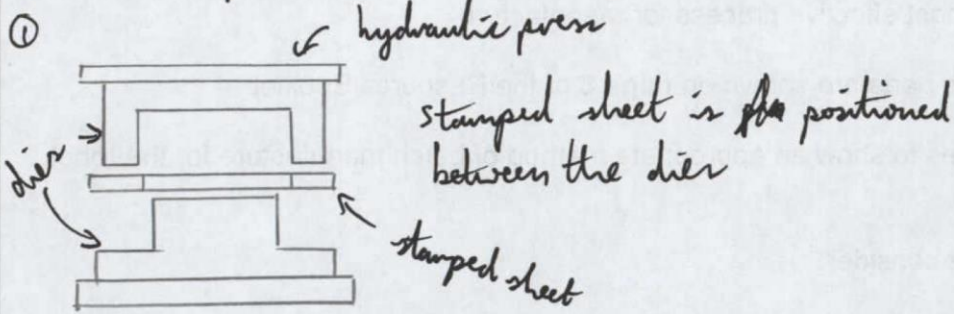 ①
hydraulic press
stamped sheet is positioned
between the dies
dies
stamped sheet